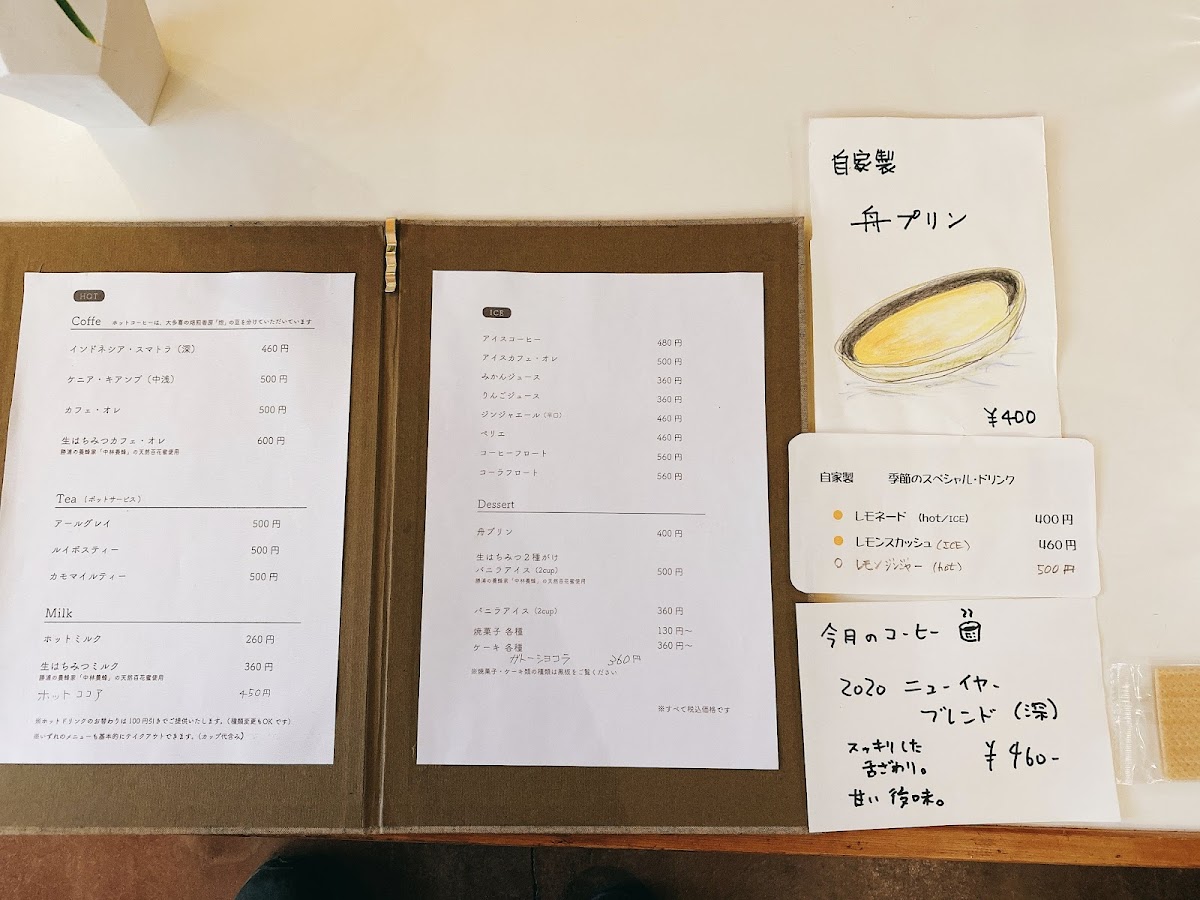 HOT
Coffe ホットコーヒーは、大多喜の焙煎香房「抱」の豆を分けていただいています
インドネシア・スマトラ（深） 460円
ケニア・キアンブ（中浅） 500円
カフェ・オレ 500円
生はちみつカフェ・オレ 600円
勝浦の養蜂家「中林養蜂」の天然百花蜜使用
Tea （ポットサービス）
アールグレイ 500円
ルイボスティー 500円
カモマイルティー 500円
Milk
ホットミルク 260円
生はちみつミルク 360円
勝浦の養蜂家「中林養蜂」の天然百花蜜使用
ホットココア 450円
※ホットドリンクのお替わりは100円引きでご提供いたします。（種類変更もOKです）
※いずれのメニューも基本的にテイクアウトできます。（カップ代含み）
ICE
アイスコーヒー 480円
アイスカフェ・オレ 500円
みかんジュース 360円
りんごジュース 360円
ジンジャエール（辛口） 460円
ペリエ 460円
コーヒーフロート 560円
コーラフロート 560円
Dessert
舟プリン 400円
生はちみつ2種がけ
バニラアイス（2cup） 500円
勝浦の養蜂家「中林養蜂」の天然百花蜜使用
バニラアイス（2cup） 360円
焼菓子 各種 130円～
ケーキ 各種 360円～
ガトーショコラ 360円
※焼菓子・ケーキ類の種類は黒板をご覧ください
※すべて税込価格です
自家製
舟プリン
¥400
自家製 季節のスペシャル・ドリンク
レモネード (hot/ICE) 400円
レモンスカッシュ (ICE) 460円
レモンジンジャー (hot) 500円
今月のコーヒー
2020 ニューイヤー
ブレンド (深)
スッキリした
舌ざわり。
¥460-
甘い後味。